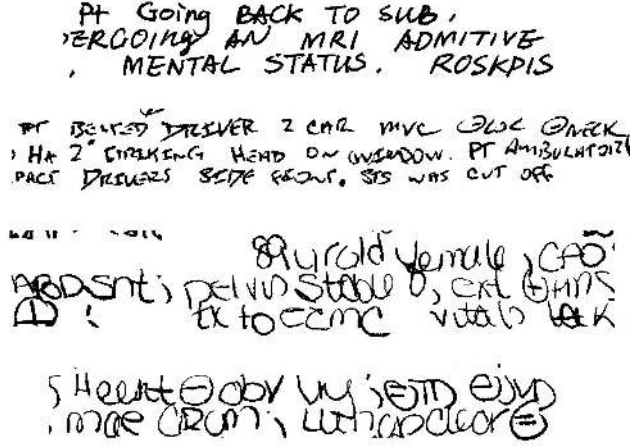 Pt Going BACK TO SUB,
ERGOING AN MRI ADMITIVE
, MENTAL STATUS. ROSKPIS
PT BELTED DRIVER 2 CAR MVC ⊖LOC ⊖NECK
, HA 2° STRIKING HEAD ON WINDOW. PT AMBULATORY
PACT DRIVERS SIDE FRONT. STS WAS CUT OFF
89 yr old female, CAO
ABD Snt; pelvis Stable, ext ⊕HMS
tx to ECMC vitals
; Heent ⊖ obv ; ⊖TD ⊖JVD
, mae ; clear ⊖